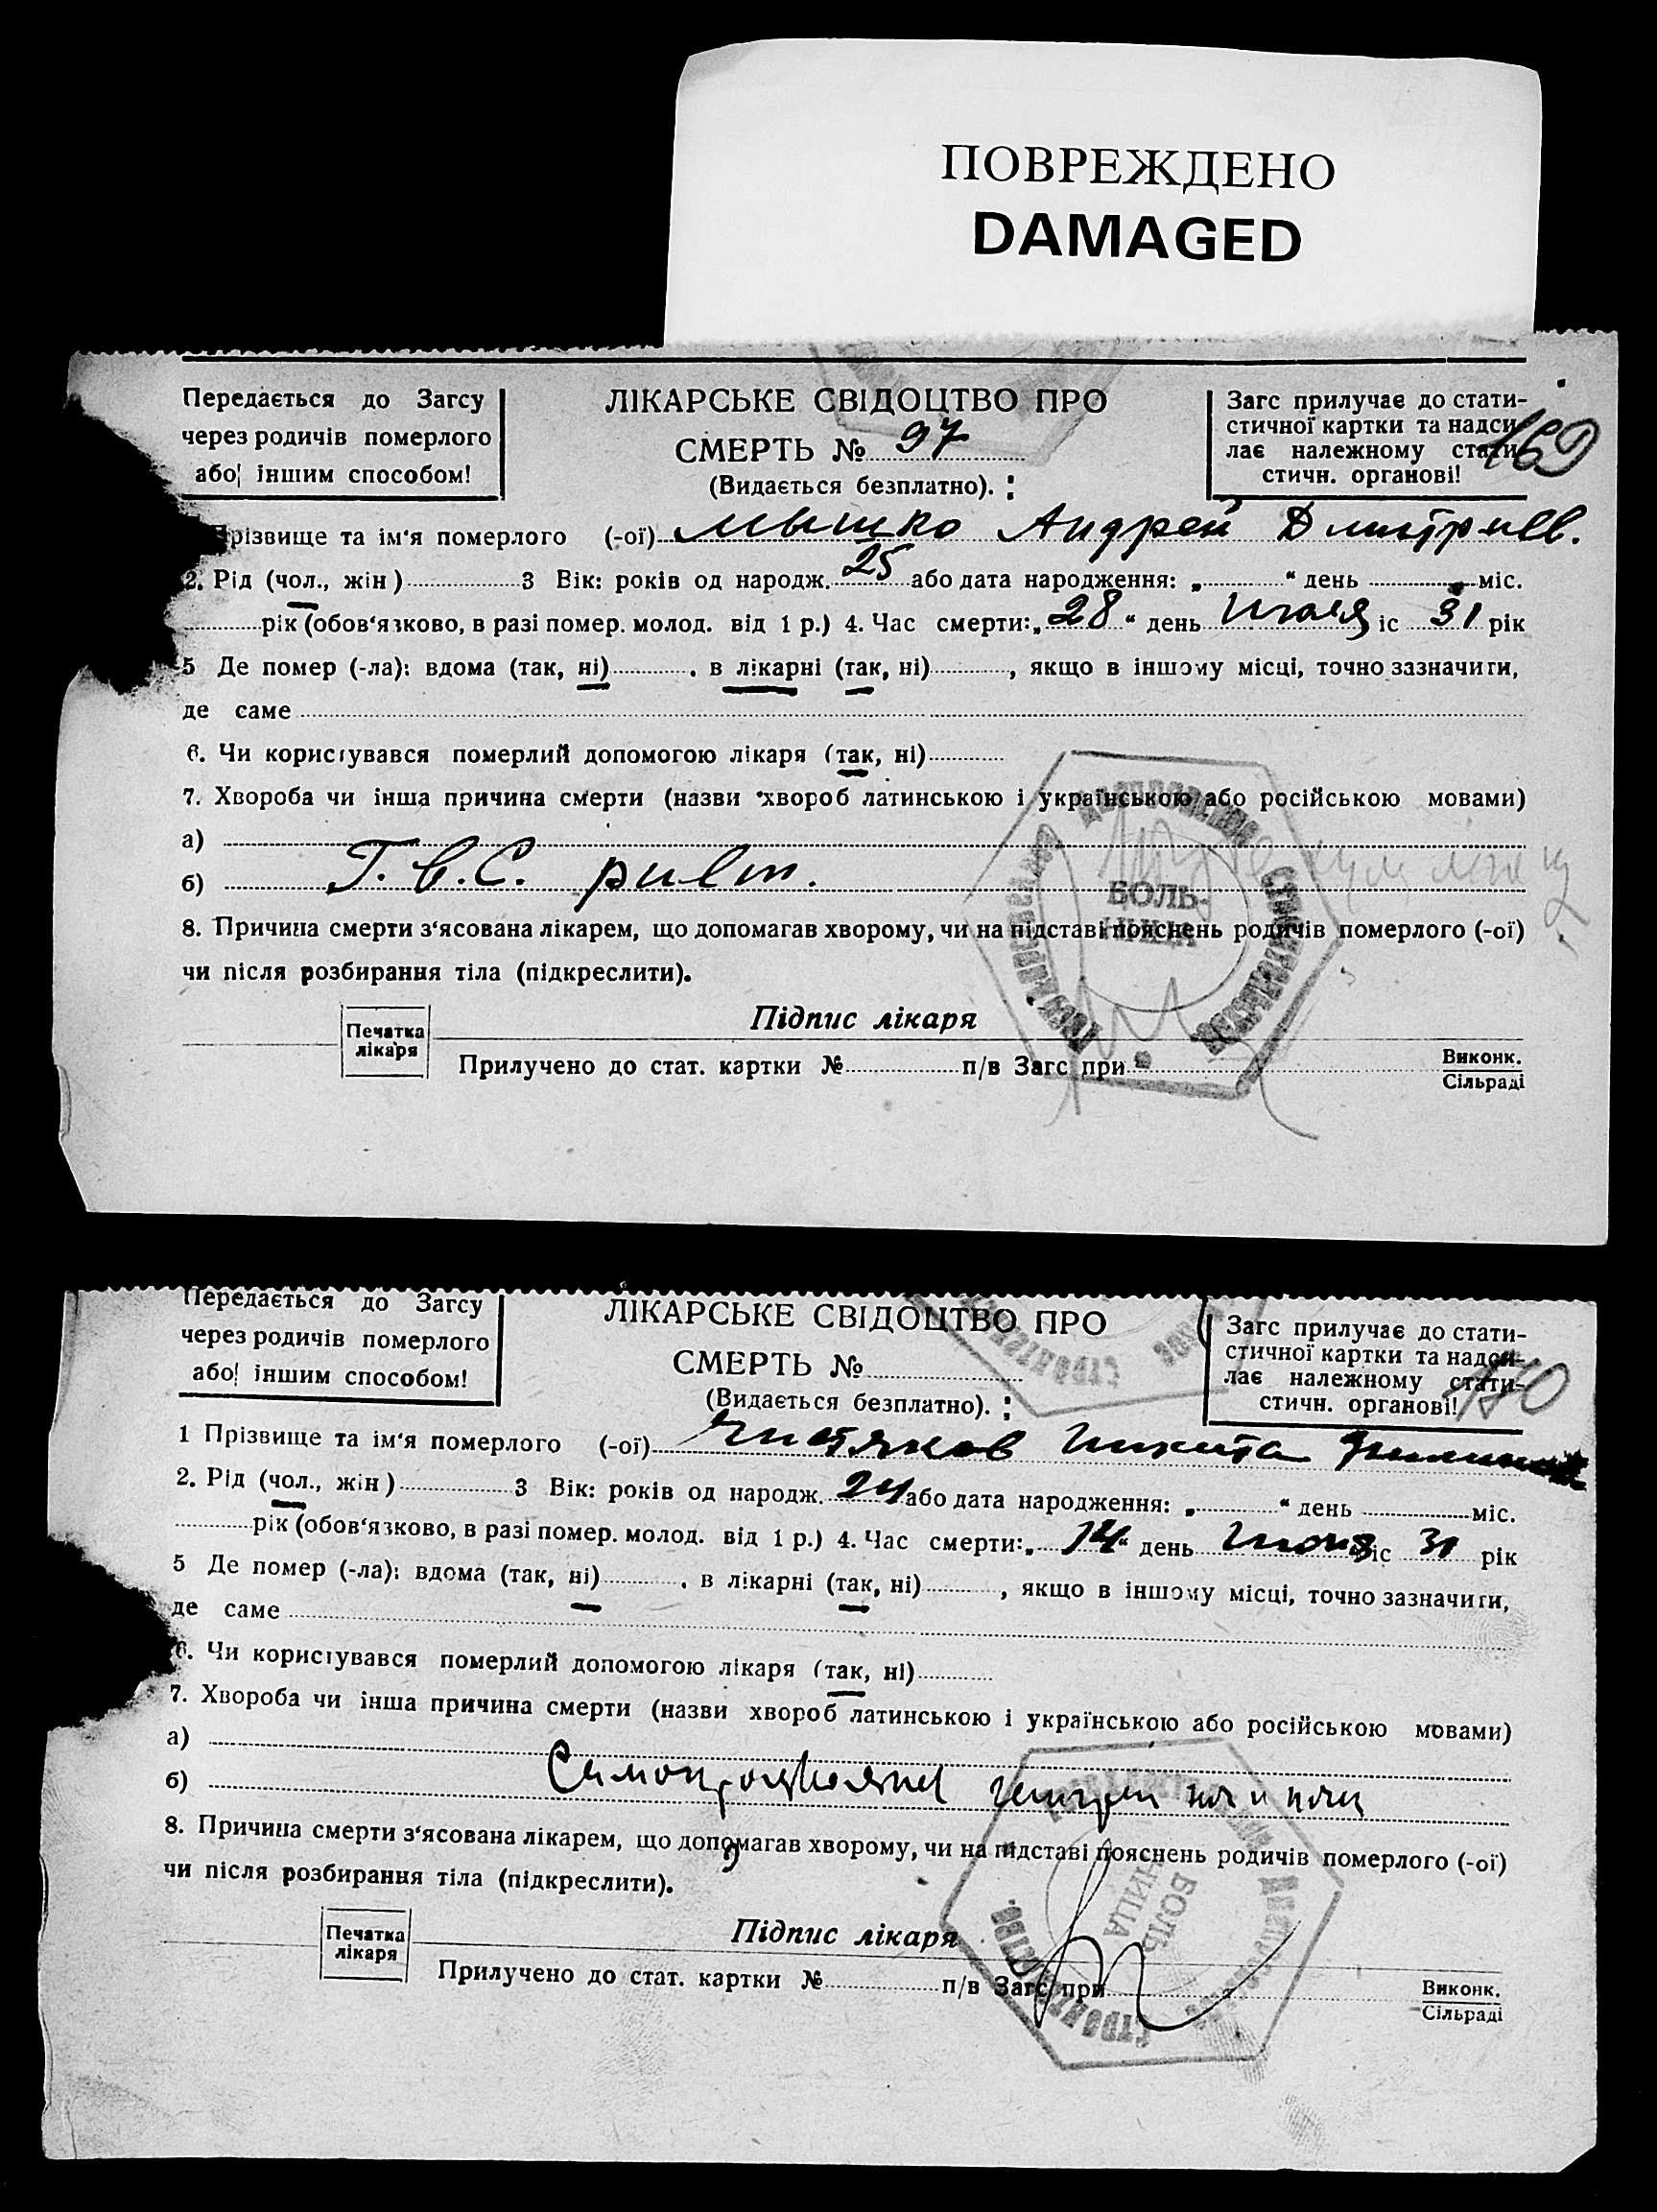 ПОВРЕЖДЕНО
DAMAGED
Передається до Загсу
через родичів померлого
або іншим способом!
ЛІКАРСЬКЕ СВІДОЦТВО ПРО
СМЕРТЬ № 97
(Видається безплатно).
Загс прилучає до стати-
стичної картки та надси
лає належному стати
стичн. органові!
169
різвище та ім'я померлого (-ої) Мышко Андрей Дмитриев.
2. Рід (чол., жін) 3 Вік: років од народж. 25 або дата народження: „ “ день міс.
рік (обов'язково, в разі помер. молод. від 1 р.) 4. Час смерти: „28“ день Июля іс 31 рік
5 Де помер (-ла): вдома (так, ні) , в лікарні (так, ні) , якщо в іншому місці, точно зазначити,
де саме
6. Чи користувався померлий допомогою лікаря (так, ні)
7. Хвороба чи інша причина смерти (назви хвороб латинською і українською або російською мовами)
а)
б) T.b.C. pulm.
8. Причина смерти з'ясована лікарем, що допомагав хворому, чи на підставі пояснень родичів померлого (-ої)
чи після розбирання тіла (підкреслити).
БОЛЬ-
НИЦА
Підпис лікаря
Печатка
лікаря
Прилучено до стат. картки № п/в Загс при
Виконк.
Сільраді
Передається до Загсу
через родичів померлого
або іншим способом!
ЛІКАРСЬКЕ СВІДОЦТВО ПРО
СМЕРТЬ №
(Видається безплатно).
Загс прилучає до стати-
стичної картки та надси-
лає належному стати-
стичн. органові!
170
1 Прізвище та ім'я померлого (-ої) Чистяков Никита
2. Рід (чол., жін) 3 Вік: років од народж. 24 або дата народження: „ “ день міс.
рік (обов'язково, в разі помер. молод. від 1 р.) 4. Час смерти: „14“ день Июня іс 31 рік
5 Де помер (-ла): вдома (так, ні) , в лікарні (так, ні) , якщо в іншому місці, точно зазначити,
де саме
6. Чи користувався померлий допомогою лікаря (так, ні)
7. Хвороба чи інша причина смерти (назви хвороб латинською і українською або російською мовами)
а)
б)
8. Причина смерти з'ясована лікарем, що допомагав хворому, чи на підставі пояснень родичів померлого (-ої)
чи після розбирання тіла (підкреслити).
БОЛЬ
НИЦА
Підпис лікаря
Печатка
лікаря
Прилучено до стат. картки № п/в Загс при
Виконк.
Сільраді